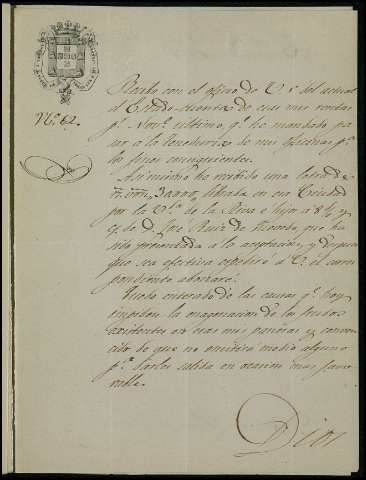 Nº 62.
Recibo con el oficio de V. 1º del actual
el Estado-cuenta de esas mis rentas
pr. Novbe. último qe. he mandado pa
sar a la teneduria de mis oficinas pa.
los fines consiguientes.
Asi mismo he recibido una letra de
rs. von. librada en esa Ciudad
por la Va. de la Riva e hijo á 8 d/v
cgo. de D. José Ruiz de que ha
sido presentada á la aceptacion, y despues
que sea efectiva espediré á V. el corres
pondiente abonaré.
Quedo enterado de las causas qe. hoy
impiden la enagenacion de los frutos
existentes en esas mis paneras y conven
cido de que no omitirá medio alguno
pa. darles salida en ocasion mas favo
rable.
Dios